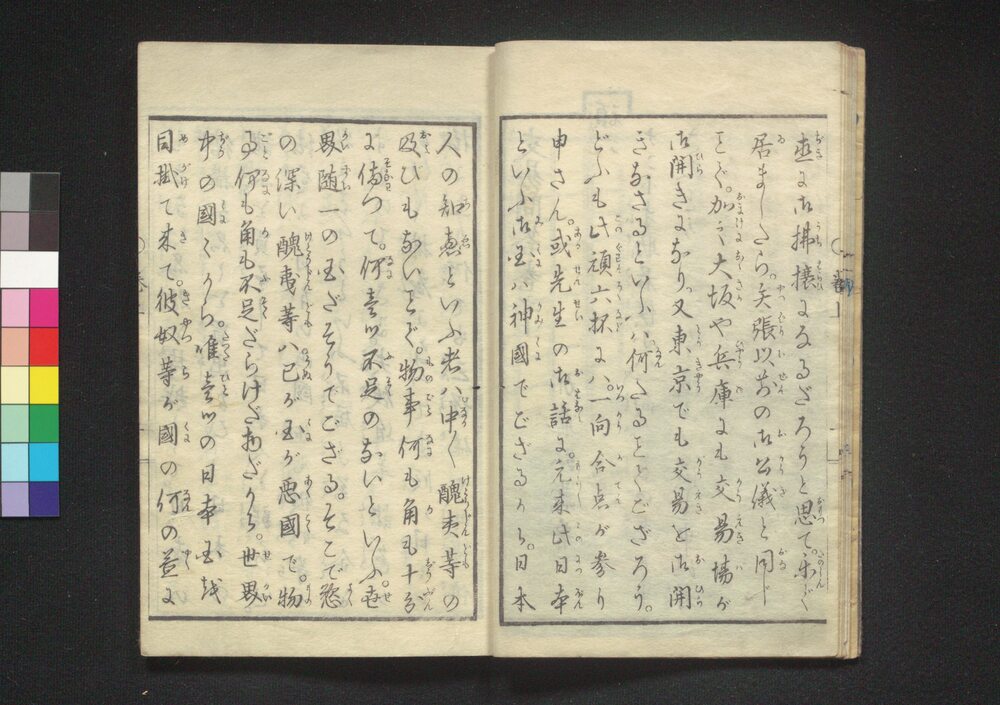 直に御拂攘になるだろうと思て。楽んで
居ましたら。矢張以前の御公儀と同じ
ことで。加之大坂や兵庫にも交易場が
御開きになり。又東京でも交易を御開
きなさるといふハ何たることでござろう。
どふも此頑六抔にハ。一向合点が参り
申さん。或先生の御話に。元来此日本
といふ御国ハ神國でござるから。日本
人の知恵といふ者ハ中〻醜夷等の
及びもないことで。物事何も角も十分
に備つて。何壹ツ不足のないといふ。世
界随一の国だそうでござる。そこで慾
の深い醜夷等ハ己が国が悪國で。物
事何も角も不足だらけだものだから。世界
中の國〻から。唯壹ツの日本国を
目掛て来て。彼奴等が國の何の益に